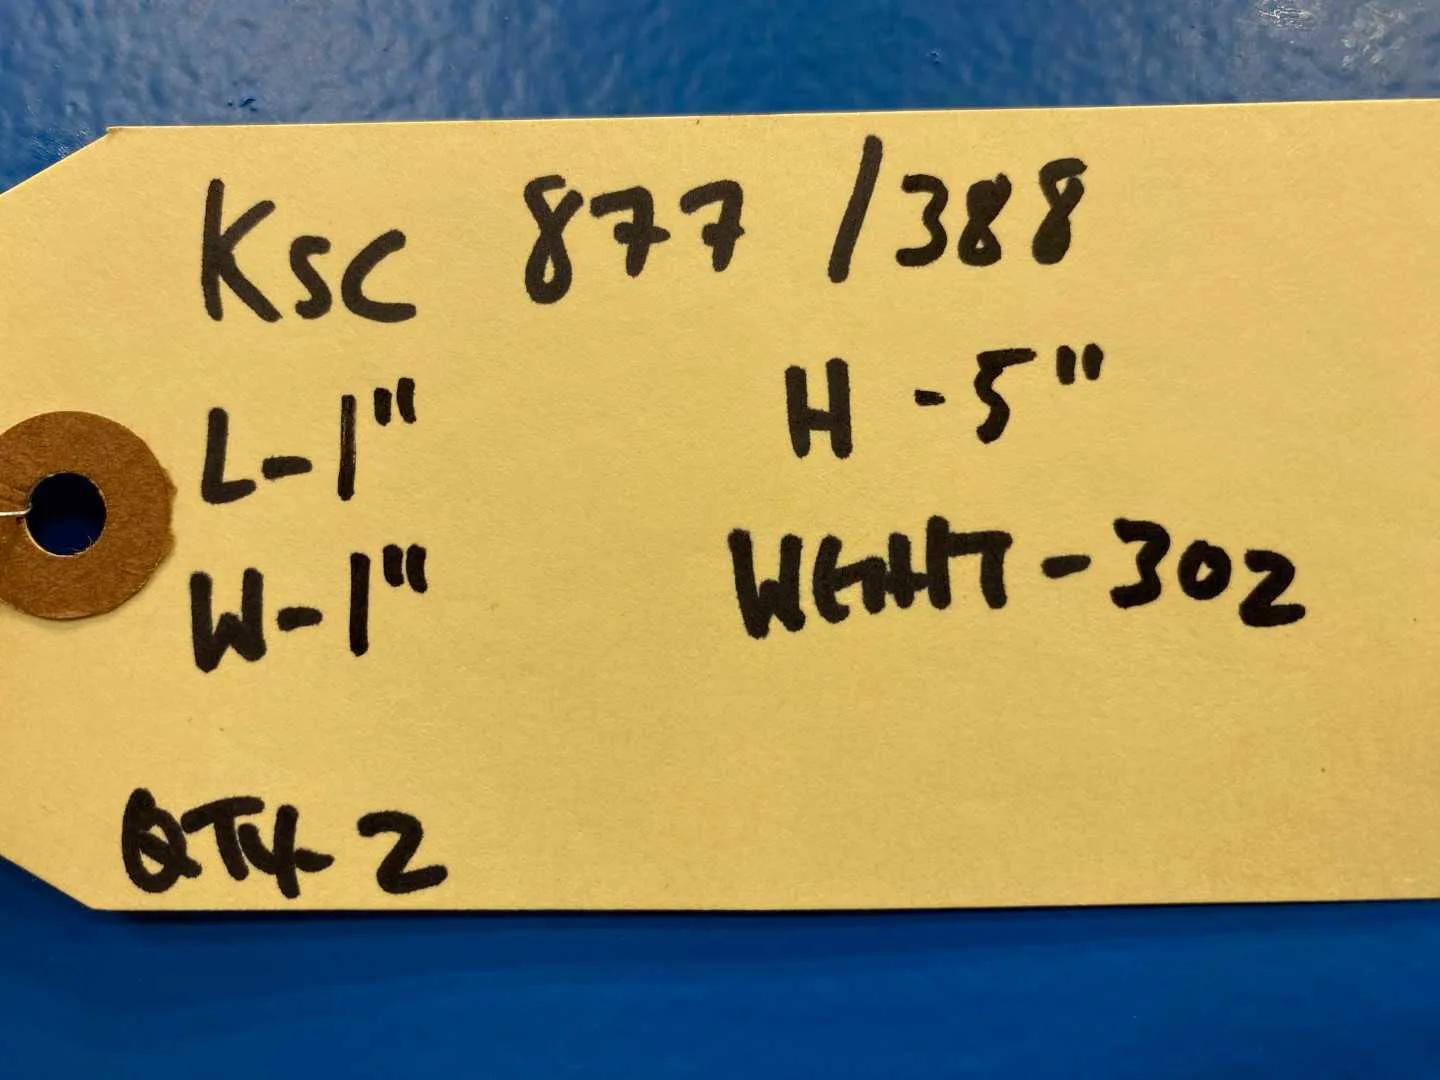 KSC 877 /388
L-1" H-5"
W-1" WGHT-30Z
QTY-2